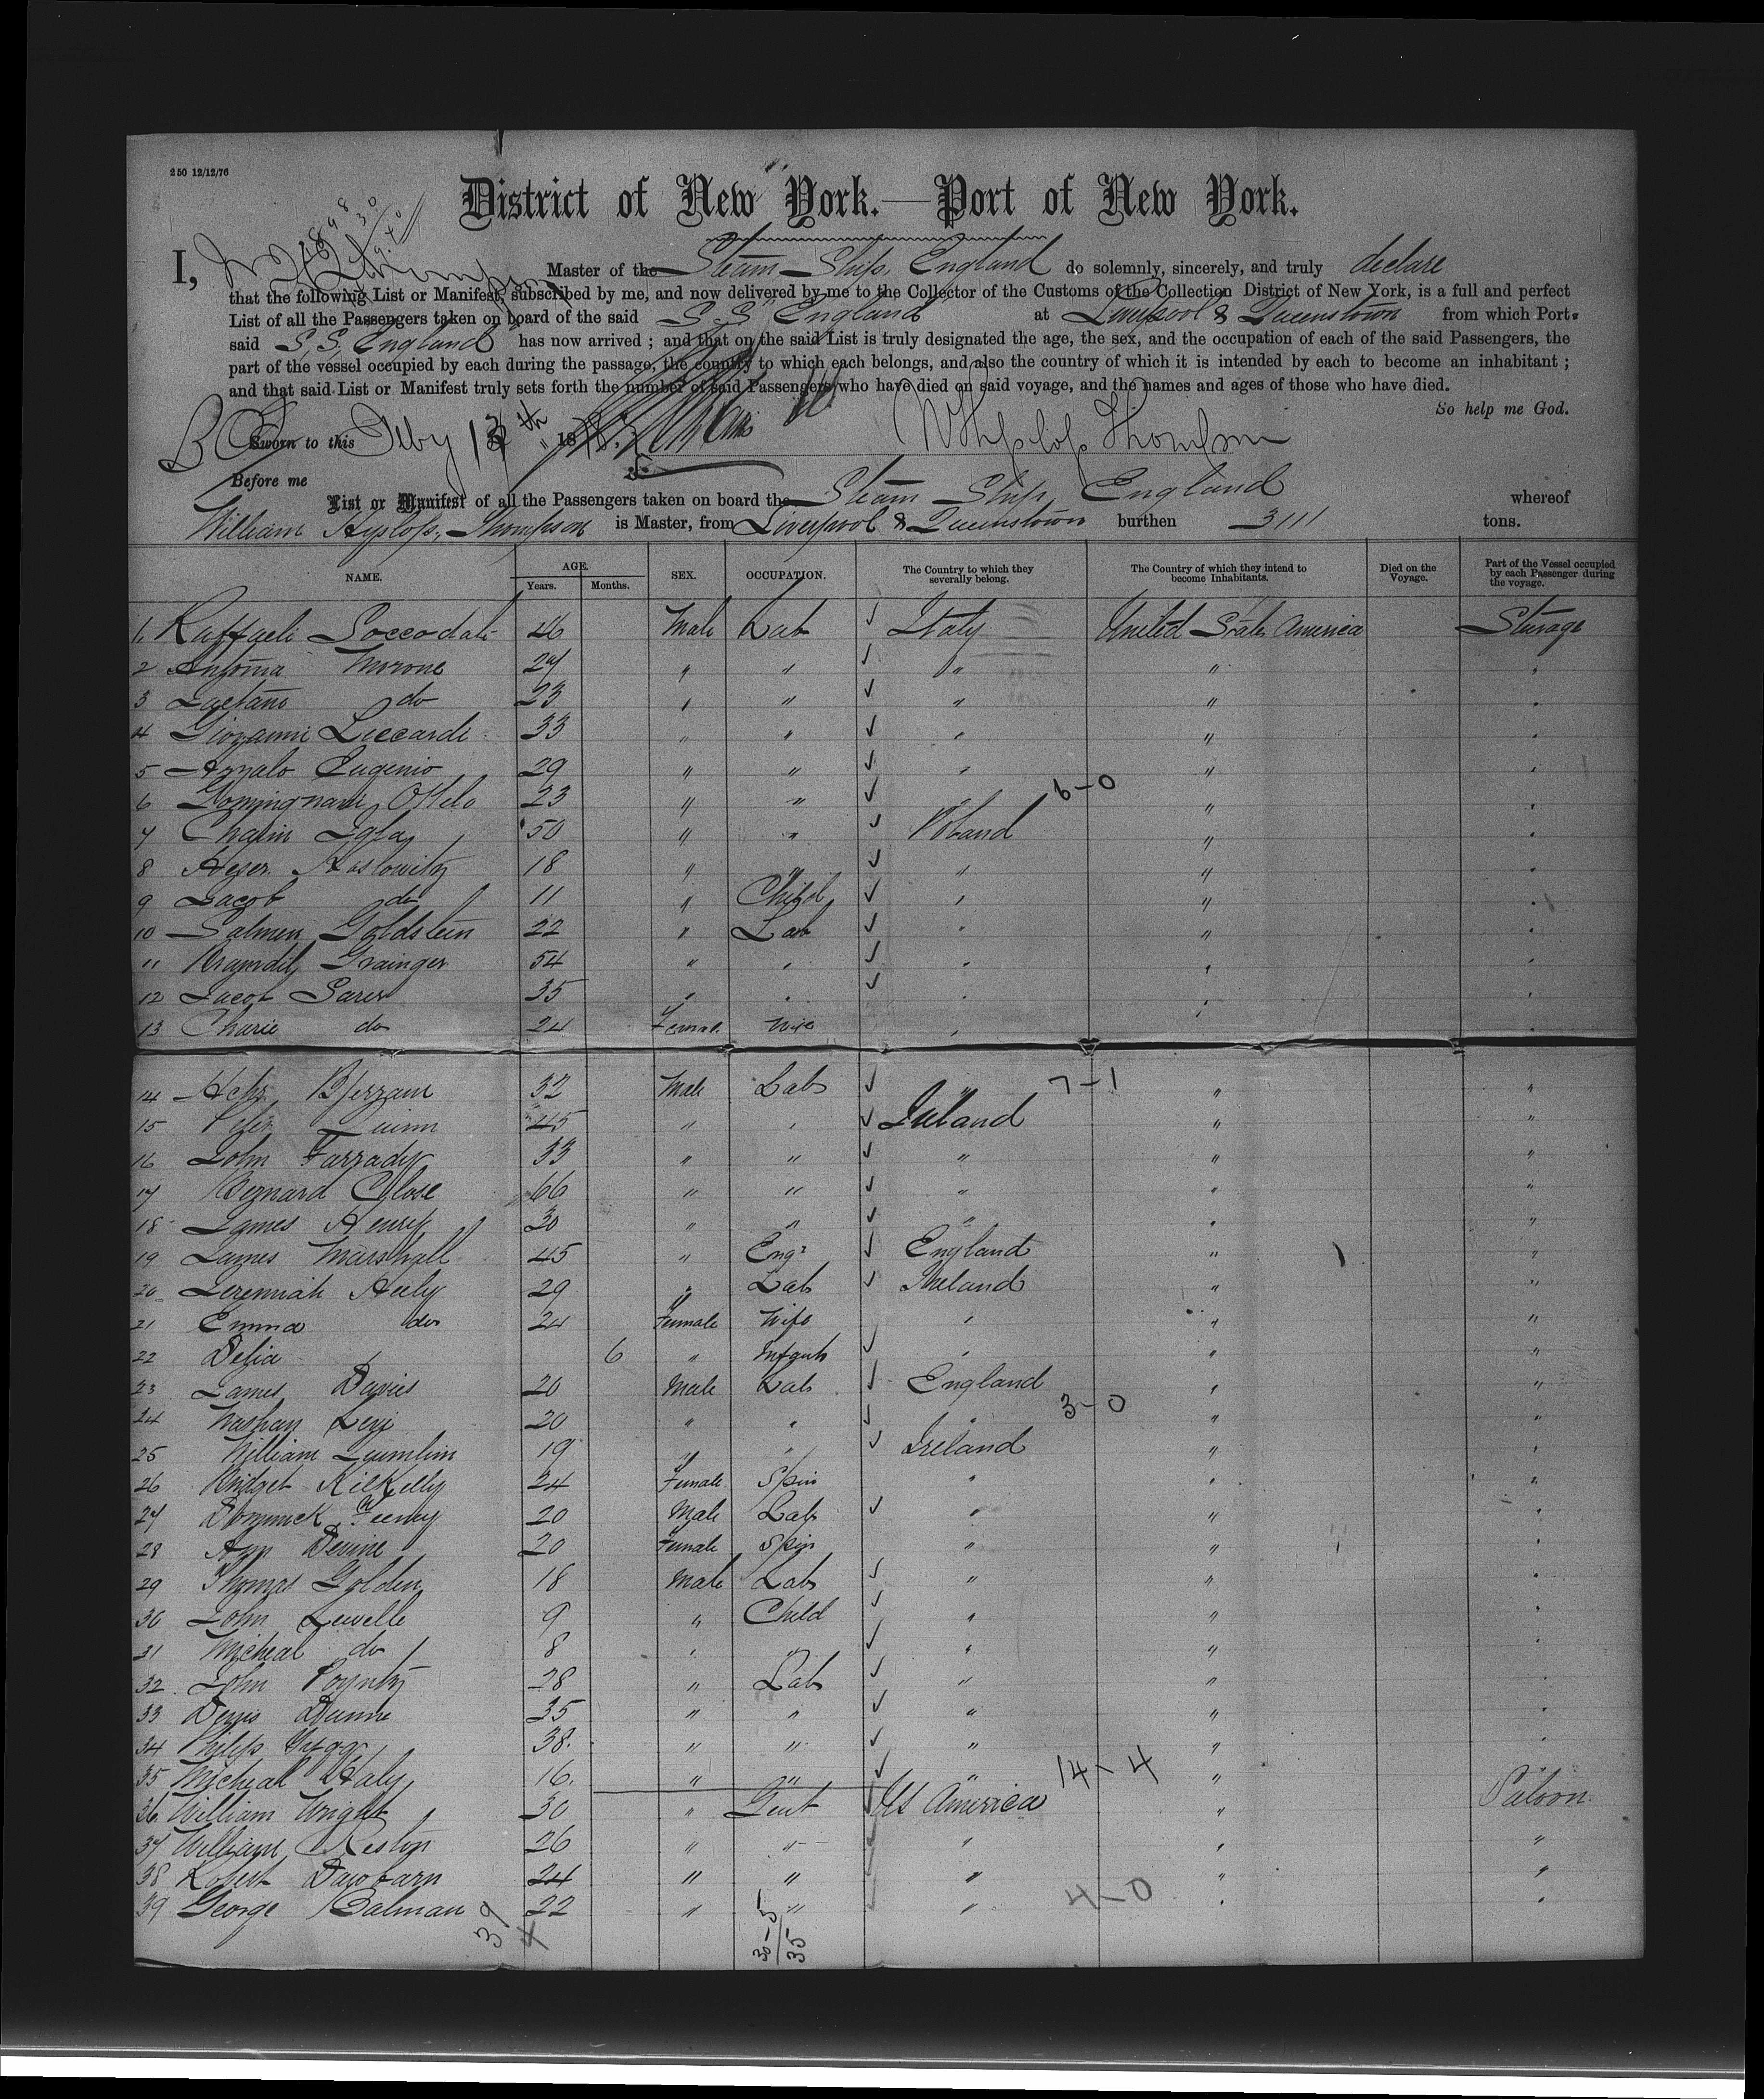 250 12/12/76
District of New York.—Port of New York.
I, Master of the Steam Ship, England do solemnly, sincerely, and truly declare
that the following List or Manifest, subscribed by me, and now delivered by me to the Collector of the Customs of the Collection District of New York, is a full and perfect
List of all the Passengers taken on board of the said S.S. England at Liverpool & Queenstown from which Port
said S.S. England has now arrived ; and that on the said List is truly designated the age, the sex, and the occupation of each of the said Passengers, the
part of the vessel occupied by each during the passage, the country to which each belongs, and also the country of which it is intended by each to become an inhabitant ;
and that said List or Manifest truly sets forth the number of said Passengers who have died on said voyage, and the names and ages of those who have died.
So help me God.
Sworn to this Feby 13th 18 W Hyslop Thompson
Before me
List or Manifest of all the Passengers taken on board the Steam Ship, England whereof
William Hyslop, Thompson is Master, from Liverpool & Queenstown burthen 3111 tons.
NAME. AGE. Years. Months. SEX. OCCUPATION. The Country to which they severally belong. The Country of which they intend to become Inhabitants. Died on the Voyage. Part of the Vessel occupied by each Passenger during the voyage.
1. Raffaeli Soccodali 46 Male Lab ✓ Italy United States America Steerage
2 Antonia Morone 27 " " ✓ " " "
3 Gaetano do 23 " " ✓ " " "
4 Giovanni Leccardi 33 " " ✓ " " "
5 Eugenio 29 " " ✓ " " "
6 23 " " ✓ " 6-0 " "
7 Chaim 50 " " ✓ Poland " "
8 18 " " ✓ " " "
9 Jacob do 11 " Child ✓ " " "
10 Salmen Goldstein 22 " Lab ✓ " " "
11 Grainger 54 " " ✓ " " "
12 Jacob 35 " " ✓ " " "
13 do 24 Female Wife " " "
14 32 Male Lab ✓ " 7-1 " "
15 Peter Quinn 45 " " ✓ Ireland " "
16 John Farrady 33 " " ✓ " " "
17 Bernard Close 66 " " ✓ " " "
18 James Henry 30 " " ✓ " " "
19 James Marshall 45 " Engr ✓ England " "
20 Jeremiah Heely 29 " Lab ✓ Ireland " "
21 Emma do 24 Female Wife " " "
22 Delia " 6 " Infant ✓ " " "
23 James Davies 20 Male Lab ✓ England " "
24 Levi 20 " " ✓ " 3-0 " "
25 William 19 " " ✓ Ireland " "
26 Bridget Kilkelly 24 Female Spin " " "
27 Dominick Feeney 20 Male Lab ✓ " " "
28 Ann Devine 20 Female Spin " " "
29 Thomas Golden 18 Male Lab ✓ " " "
30 John Lewelle 9 " Child ✓ " " "
31 Micheal do 8 " " ✓ " " "
32 John Poyntz 28 " Lab ✓ " " "
33 Denis Dunne 35 " " ✓ " " "
34 Philip 38. " " ✓ " " "
35 Micheal Haly 16. " " ✓ " 14-4 " "
36. William Wright 30 " Gent ✓ US America " Saloon
37 William Reston 26 " " ✓ " " "
38 Robert Dawbarn 24 " " ✓ " " "
39 George Balman 22 " " ✓ " 4-0 " "
39
4
30-5
35